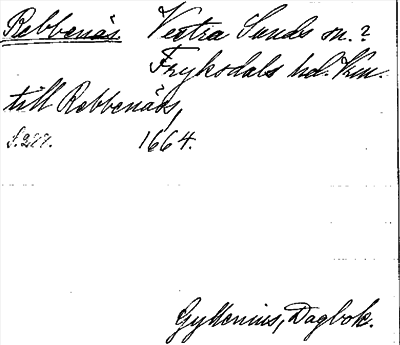 Rebbenäs Vestra Sunds sn.?
Fryksdals hd. Vrm.
till Rebbenääs,
s. 277. 1664.
Gyllenius, Dagbok.